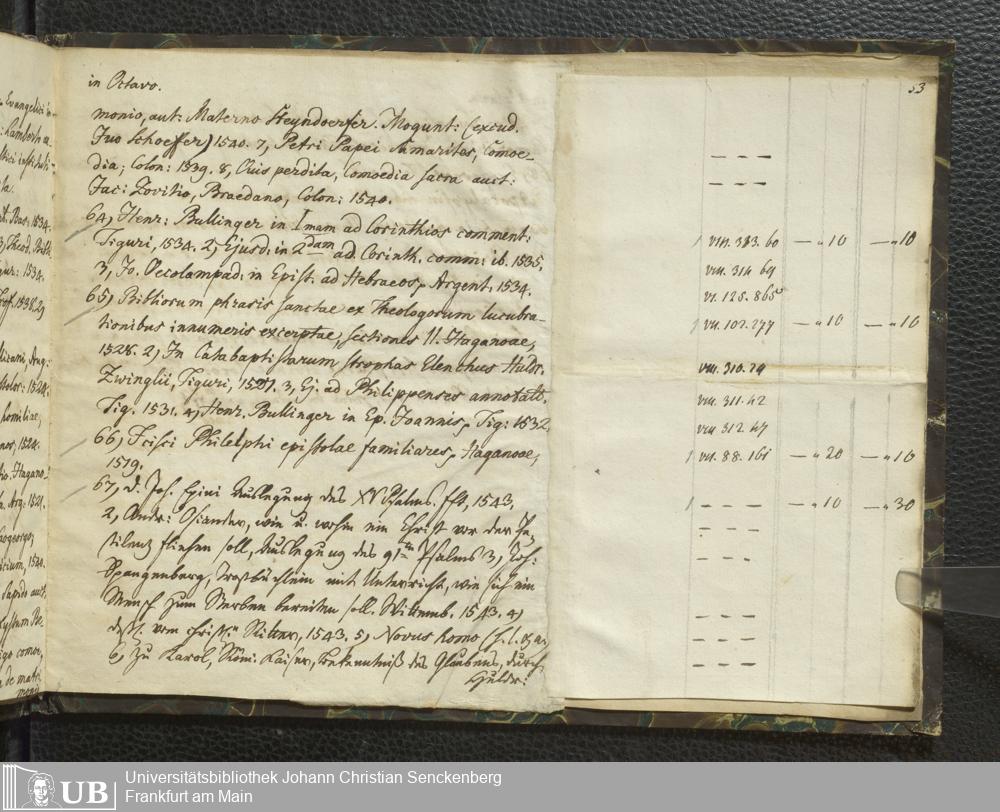 in Octavo.
monio, aut: Materno Heyndoerfer. Mogunt: (excud.
Ivo Schoeffer) 1540. 7, Petri Papei Samarites, Comoe-
dia; Colon: 1539. 8, Ovis perdita, Comoedia sacra auct:
Jac: Zovitio, Braedano, Colon: 1540.
64, Henr: Bullinger in Imam ad Corinthios comment:
Tiguri, 1534. 2, Ejusd: in 2dam ad Corinth. comm: ib. 1535.
3, Jo. Oecolampad: in Epist. ad Hebraeos, Argent. 1534.
65, Bibliorum phrasis sanctae ex Theologorum lucubra-
tionibus innumeris excerptae, sectiones 11. Haganoae,
1528. 2, In Catabaptistarum strophas Elenchus Huldr.
Zwinglii, Tiguri, 3, Ej. ad Philippenses annotatt.
Tig. 1531. 4, Henr. Bullinger in Ep. Joannis, Tig: 1532.
66, Philelphi epistolae familiares, Haganoae,
1519.
67, D. Joh. Auslegung des XV Psalms. 1543.
2, Andr: Osiander, wie u. wohin ein Christ vor der Pe-
stilenz fliehen soll, Auslegung des 91ten Psalms 3, Joh:
Spangenberg, Trostbüchlein mit Unterricht, wie sich ein
Mensch zum Sterben bereiten soll. Wittemb. 1543. 4,
vom christl.n Ritter, 1543. 5, Novus homo (s. l. & a.)
6, Zu Karol, Röm: Kaiser, Bekenntniß des Glaubens, durch
Huldr:
53
1 VIII. 383. 60 — " 10 — " 10
VIII. 314. 69
VI. 125. 865
1 VII. 102. 277 — " 10 — " 10
VIII. 310. 29
VIII. 311. 42
VIII. 312. 47
1 VII. 88. 161 — " 20 — " 10
1 — — — — " 10 — " 30
Universitätsbibliothek Johann Christian Senckenberg
Frankfurt am Main
UB